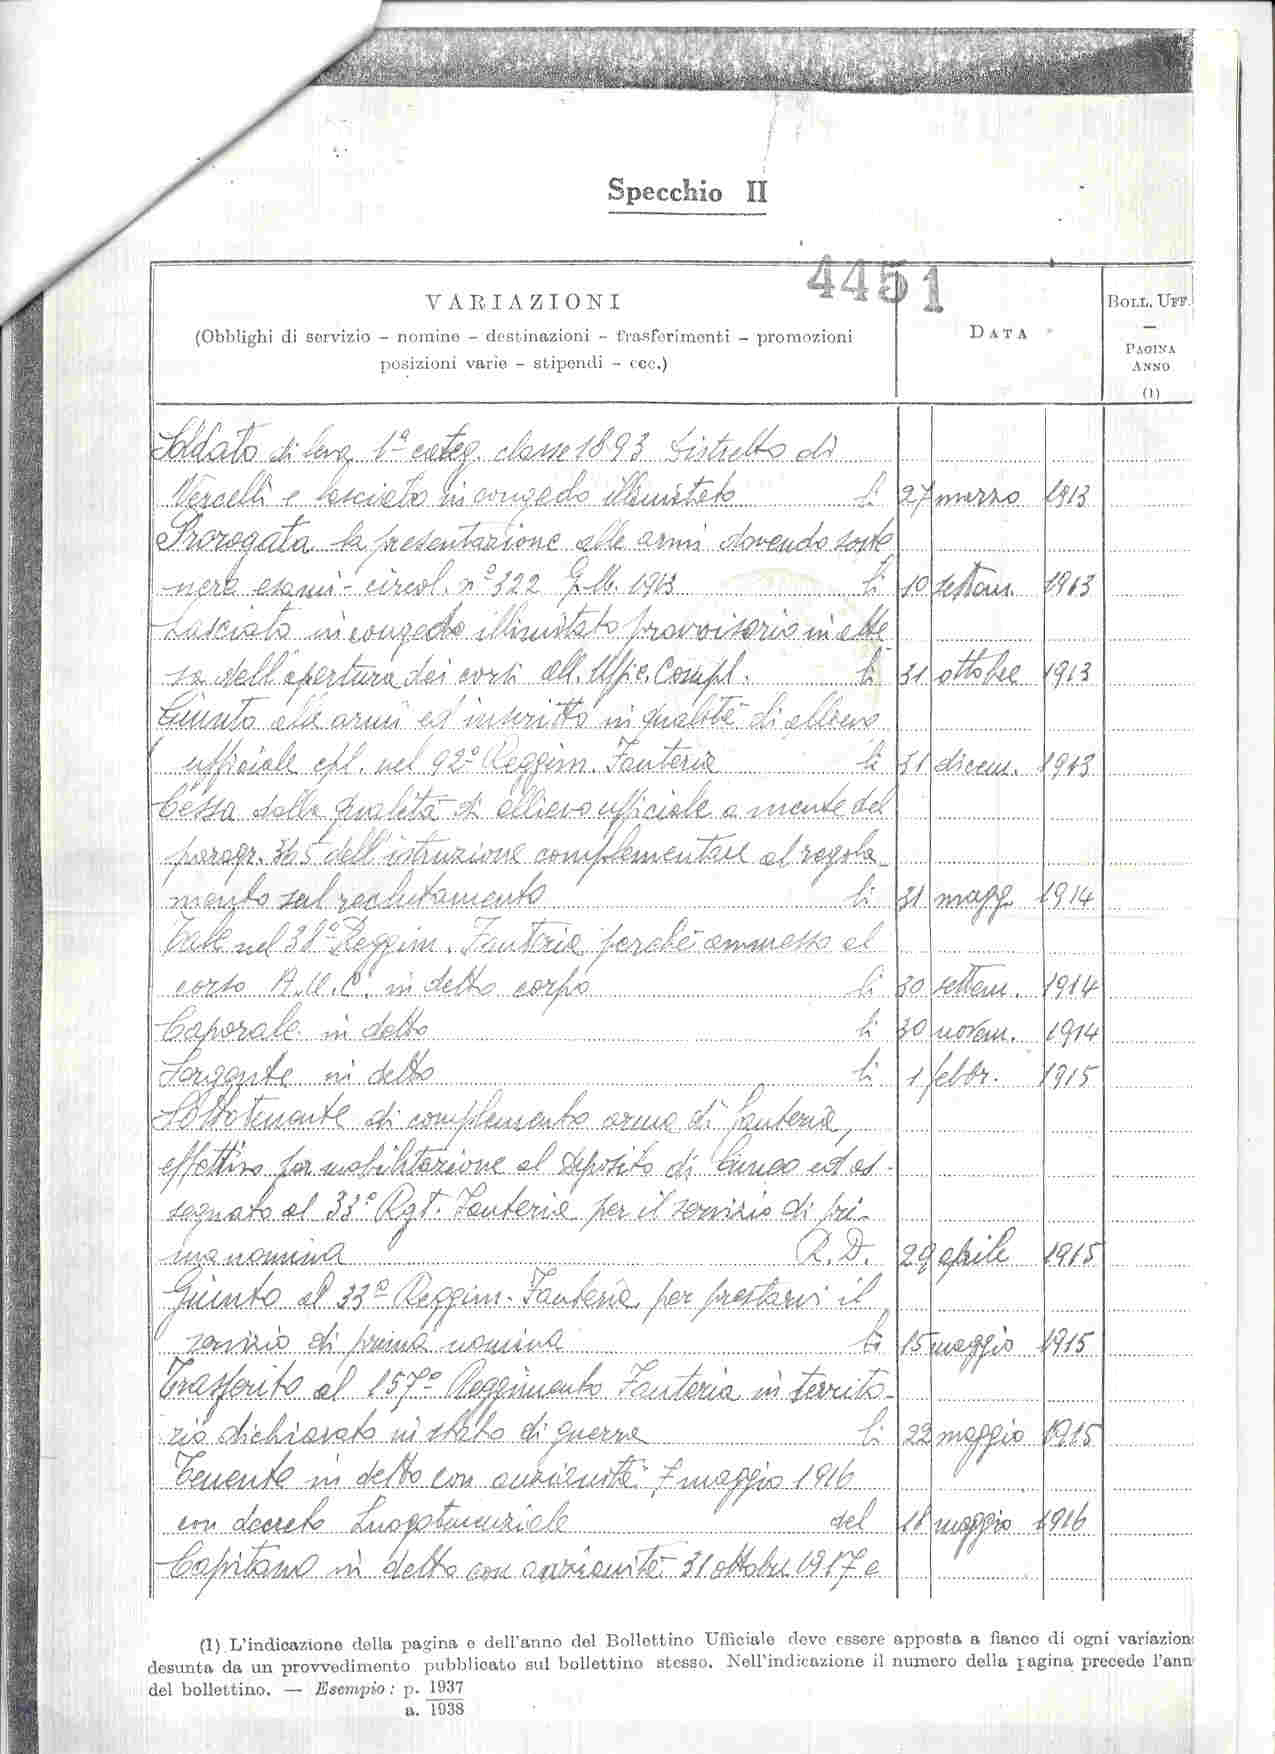 Specchio II
4451
VARIAZIONI
(Obblighi di servizio - nomine - destinazioni - trasferimenti - promozioni
posizioni varie - stipendi - ecc.)
DATA
BOLL. UFF.
PAGINA
ANNO
(1)
Soldato di leva 1ª categ. classe 1893 Distretto di
Vercelli e lasciato in congedo illimitato li 27 marzo 1913
Prorogata la presentazione alle armi dovendo soste
nere esami - circol. nº 322 G.M. 1913 li 10 settem. 1913
Lasciato in congedo illimitato provvisorio in atte
sa dell'apertura dei corsi all. Uffic. Compl. li 31 ottobre 1913
Giunto alle armi ed inscritto in qualità di allievo
ufficiale cpl. nel 92º Reggim. Fanteria li 31 dicem. 1913
Cessa dalla qualità di allievo ufficiale a mente del
paragr. 365 dell'istruzione complementare al regola-
mento sul reclutamento li 31 magg. 1914
Tale nel 38º Reggim. Fanteria perchè ammesso al
corso A.U.C. in detto corpo li 30 settem. 1914
Caporale in detto li 30 novem. 1914
Sergente in detto li 1 febbr. 1915
Sottotenente di complemento arma di fanteria,
effettivo per mobilitazione al deposito di Cuneo ed as-
segnato al 33º Rgt. Fanteria per il servizio di pri-
ma nomina R.D. 29 aprile 1915
Giunto al 33º Reggim. Fanteria per prestarvi il
servizio di prima nomina li 15 maggio 1915
Trasferito al 157º Reggimento Fanteria in territo-
rio dichiarato in stato di guerra li 22 maggio 1915
Tenente in detto con anzianità 7 maggio 1916
con decreto Luogotenenziale del 18 maggio 1916
Capitano in detto con anzianità 31 ottobre 1917 e
(1) L'indicazione della pagina e dell'anno del Bollettino Ufficiale deve essere apposta a fianco di ogni variazion
desunta da un provvedimento pubblicato sul bollettino stesso. Nell'indicazione il numero della pagina precede l'ann
del bollettino. — Esempio: p. 1937
a. 1938